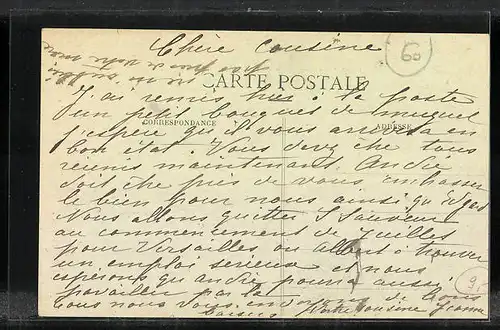 Chère Cousine
60
CARTE POSTALE
J'ai remis hier à la poste
un petit bouquet de muguet
CORRESPONDANCE
ADRESSE
j'espère qu'il vous arrivera en
bon état. Vous devez être tous
réunis maintenant. Andée
doit être près de vous embrasser
le bien pour nous ainsi qu'Edgard
Nous allons quitter St Sauveur
au commencement de Juillet
pour Versailles ou Albert à trouver
un emploi serieux et nous
espérons qu'Andée pourra aussi
travailler par là
tous nous vous envoyons de bons
baisers Votre Cousine Jeanne